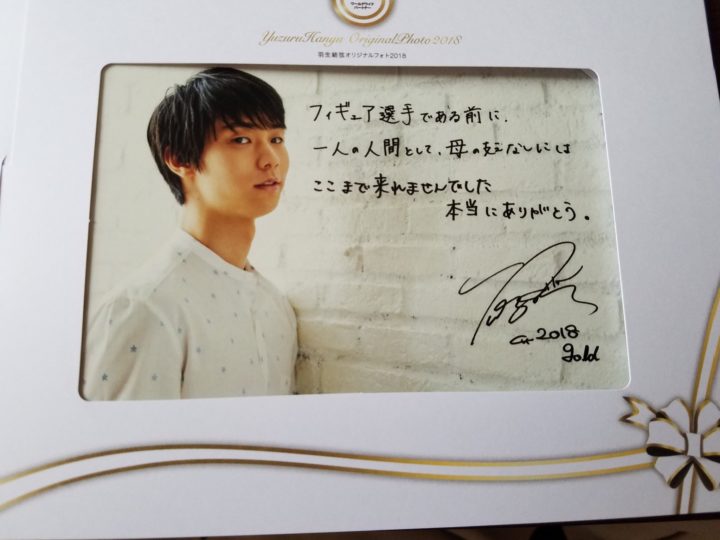 ワールドワイド
パートナー
Yuzuru Hanyu Original Photo 2018
羽生結弦オリジナルフォト2018
フィギュア選手である前に、
一人の人間として、母の支えなしには
ここまで来れませんでした
本当にありがとう。
2018
gold